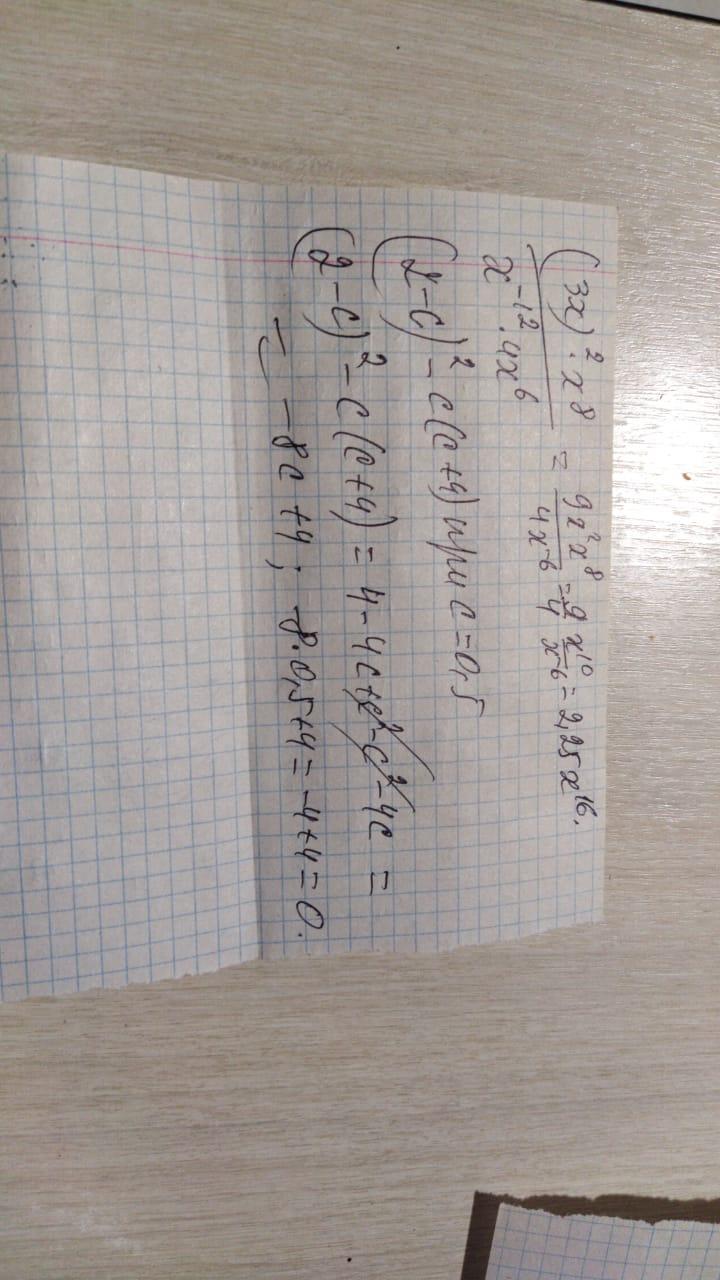 (3x)² · x⁸ / x⁻¹² · 4x⁶ = 9x²x⁸ / 4x⁻⁶ = 9/4 x¹⁰/x⁻⁶ = 2,25x¹⁶.
(2-c)² - c(c+4) при c=0,5
(2-c)² - c(c+4) = 4-4c+c²-c²-4c =
= -8c+4; -8·0,5+4=-4+4=0.